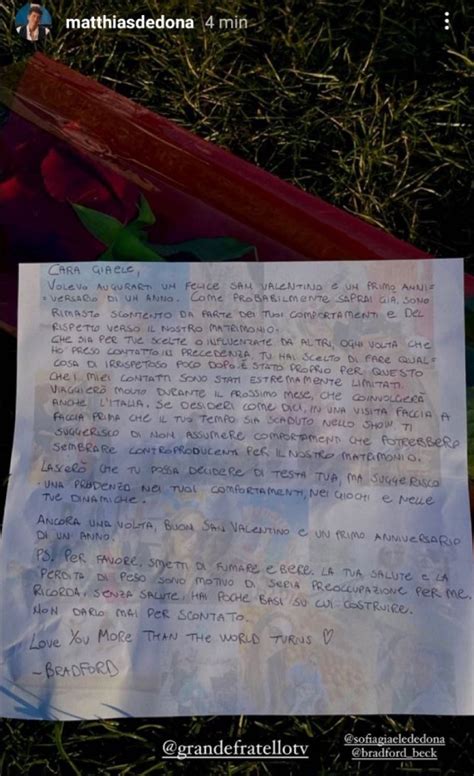 matthiasdedona 4 min
CARA GIAELE,
VOLEVO AUGURARTI UN FELICE SAN VALENTINO E UN PRIMO ANNI-
=VERSARIO DI UN ANNO. COME PROBABILMENTE SAPRAI GIÀ, SONO
RIMASTO SCONTENTO DA PARTE DEI TUOI COMPORTAMENTI E DEL
RISPETTO VERSO IL NOSTRO MATRIMONIO.
CHE SIA PER TUE SCELTE O INFLUENZATE DA ALTRI, OGNI VOLTA CHE
HO PRESO CONTATTO IN PRECEDENZA, TU HAI SCELTO DI FARE QUAL-
COSA DI IRRISPETOSO POCO DOPO. È STATO PROPRIO PER QUESTO
CHE I MIEI CONTATTI SONO STATI ESTREMAMENTE LIMITATI.
VIAGGERÒ MOLTO DURANTE IL PROSSIMO MESE, CHE COINVOLGERÀ
ANCHE L'ITALIA. SE DESIDERI COME DICI, IN UNA VISITA FACCIA A
FACCIA PRIMA CHE IL TUO TEMPO SIA SCADUTO NELLO SHOW, TI
SUGGERISCO DI NON ASSUMERE COMPORTAMENTI CHE POTREBBERO
SEMBRARE CONTROPRODUCENTI PER IL NOSTRO MATRIMONIO.
LASCERÒ CHE TU POSSA DECIDERE DI TESTA TUA, MA SUGGERISCO
UNA PRUDENZA NEI TUOI COMPORTAMENTI, NEI GIOCHI E NELLE
TUE DINAMICHE.
ANCORA UNA VOLTA, BUON SAN VALENTINO E UN PRIMO ANNIVERSARIO
DI UN ANNO.
PS. PER FAVORE, SMETTI DI FUMARE E BERE. LA TUA SALUTE E LA
PERDITA DI PESO SONO MOTIVO DI SERIA PREOCCUPAZIONE PER ME.
RICORDA, SENZA SALUTE, HAI POCHE BASI SU CUI COSTRUIRE.
NON DARLO MAI PER SCONTATO.
LOVE YOU MORE THAN THE WORLD TURNS ♡
-BRADFORD
@grandefratellotv
@sofiagiaelededona
@bradford_beck